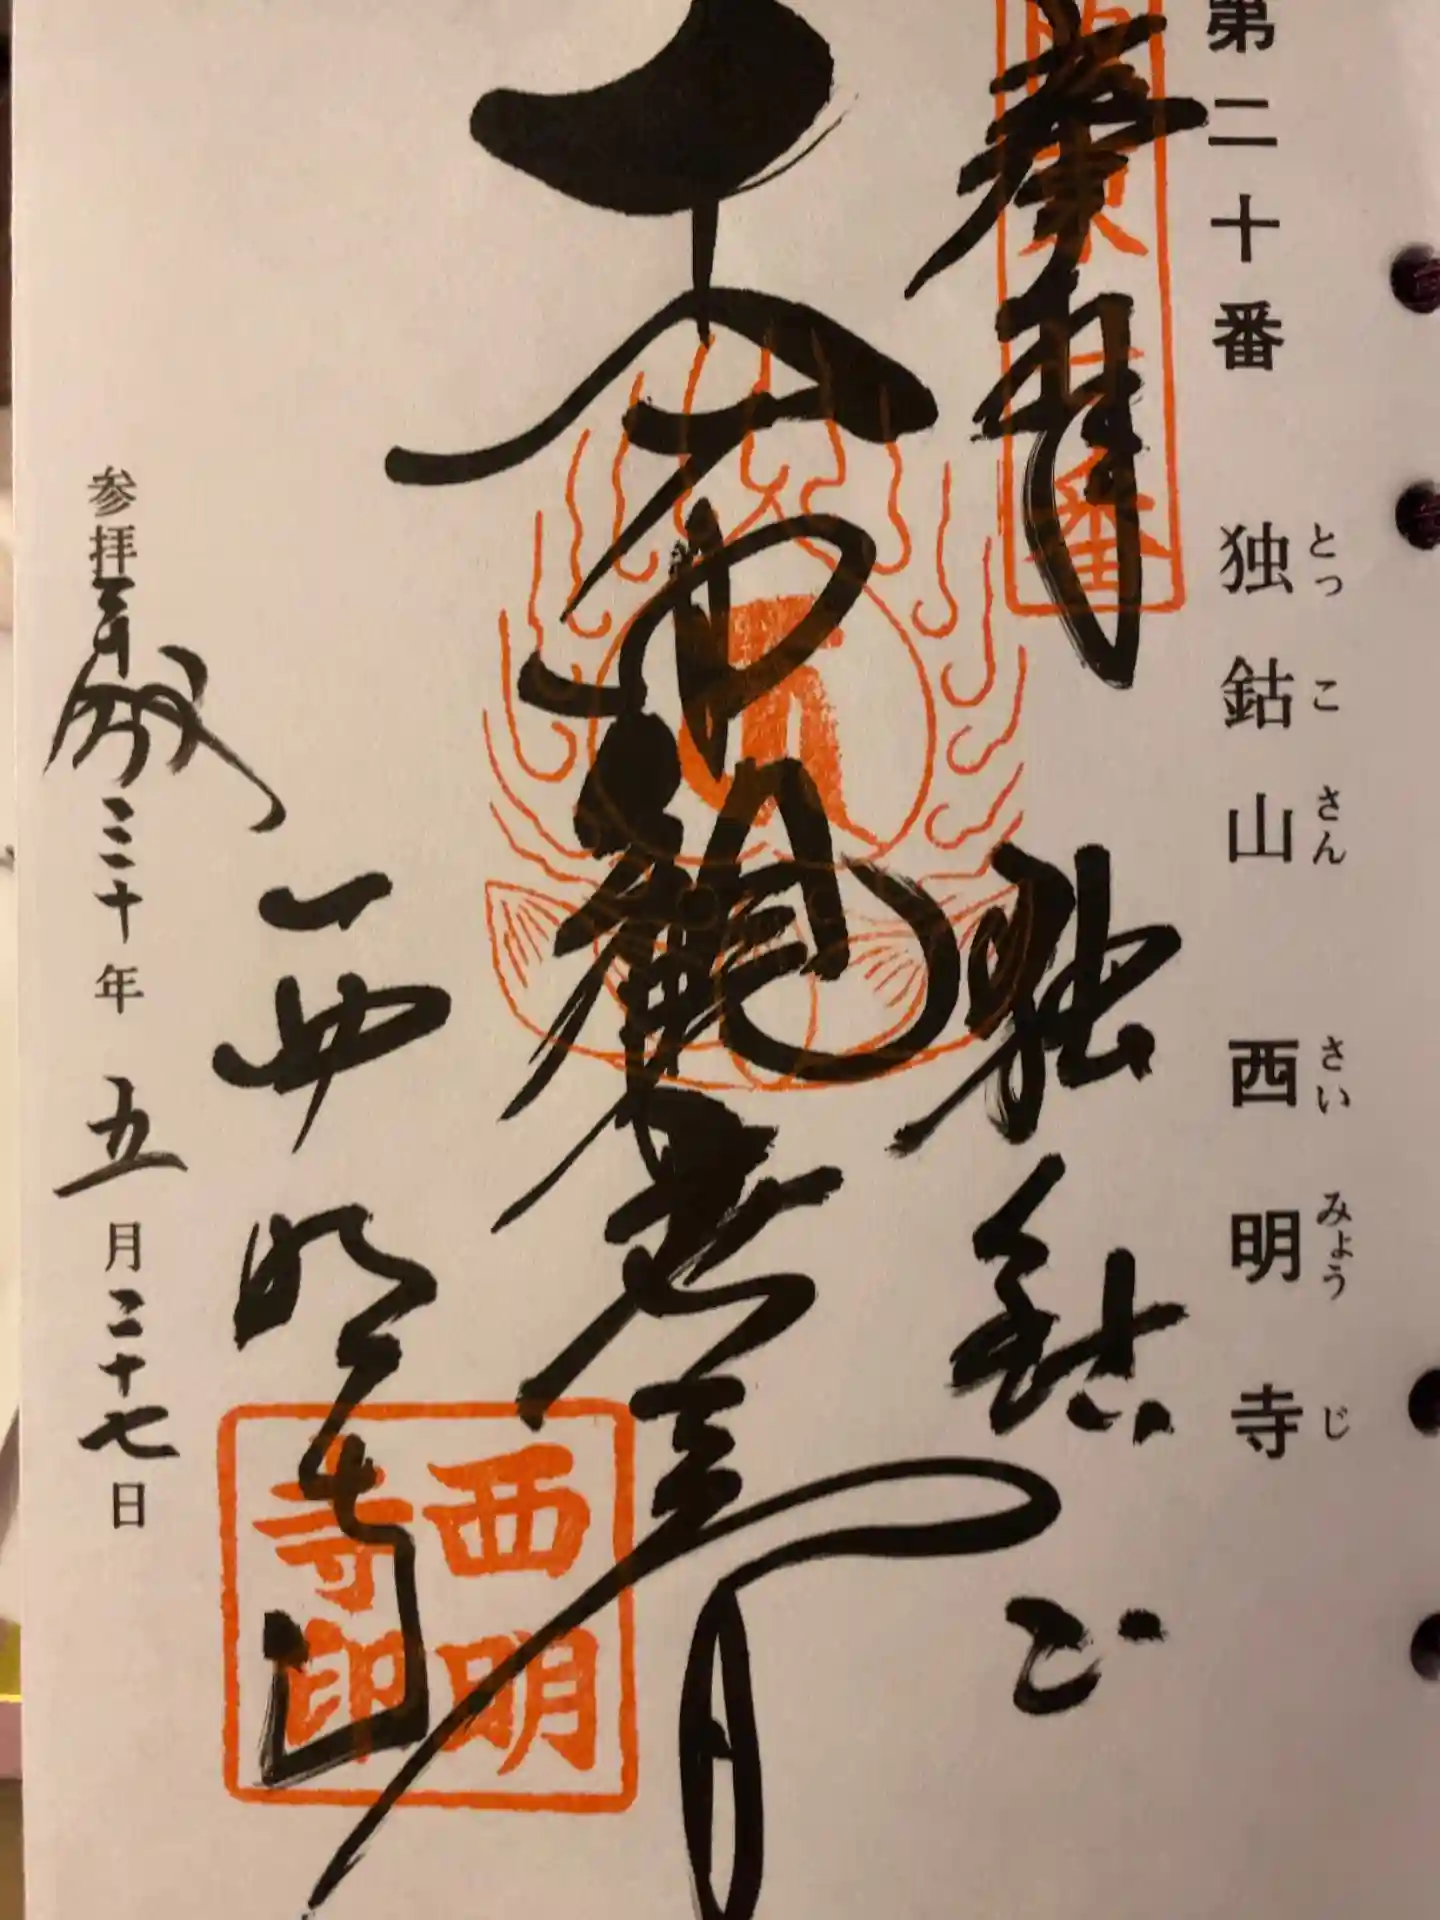 第二十番 独鈷山 西明寺
とっこさん さいみょうじ
奉拝
独鈷山
十一面観世音
西明寺
西明寺印
参拝 平成三十年 五月二十七日